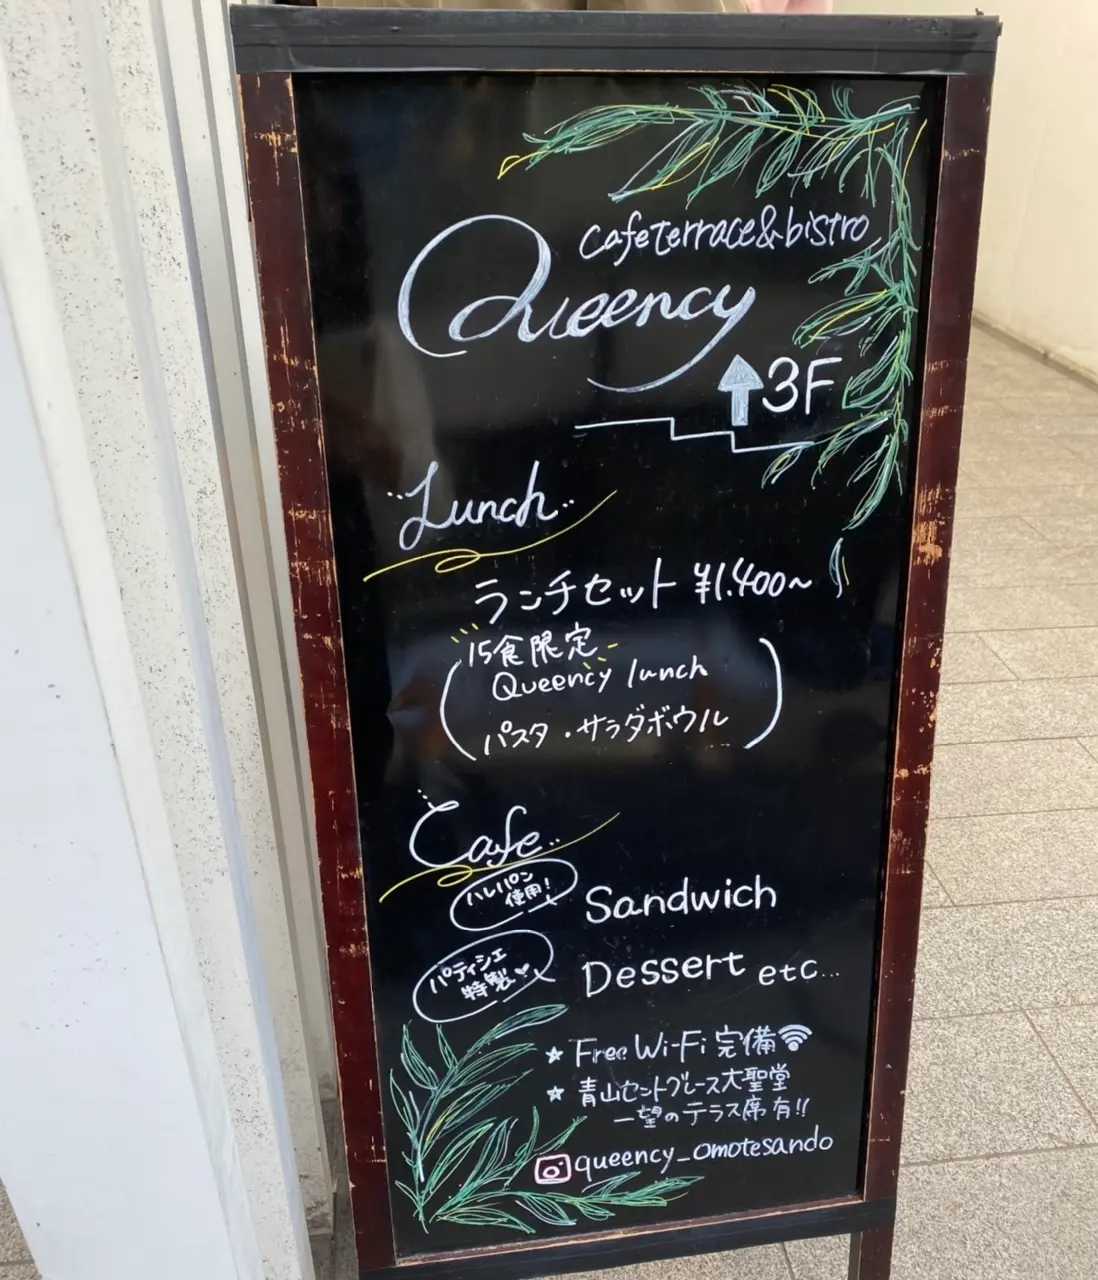 cafeterrace&bistro
Queency
3F
Lunch
ランチセット ¥1.400~
15食限定
Queency lunch
パスタ・サラダボウル
Cafe
ハレパン
使用!
Sandwich
パティシエ
特製♥
Dessert etc...
★ Free Wi-Fi 完備
★ 青山セントグレース大聖堂
一望のテラス席有!!
queency_omotesando